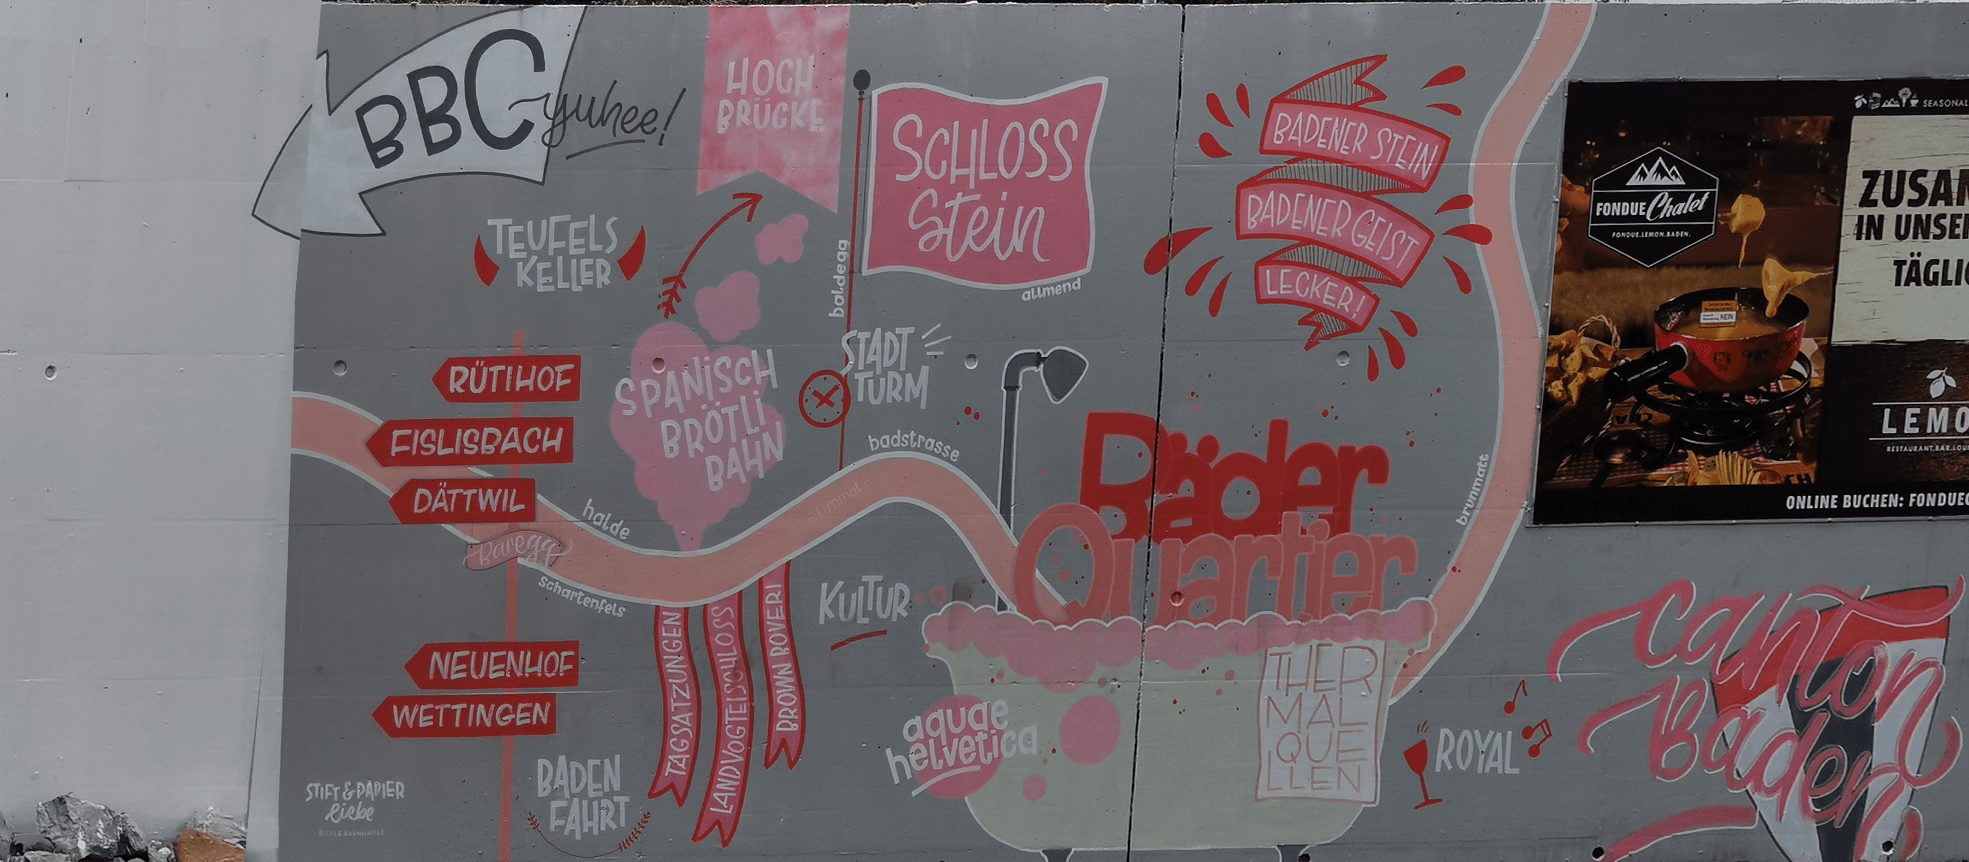 BBC yuhee!
HOCH
BRÜCKE
SCHLOSS
Stein
allmend
baldegg
BADENER STEIN
BADENER GEIST
LECKER!
TEUFELS
KELLER
SPANISCH
BRÖTLI
BAHN
STADT
TURM
RÜTIHOF
FISLISBACH
DÄTTWIL
Baregg
halde
schartenfels
limmat
badstrasse
brunnmatt
Bäder
Quartier
KULTUR
NEUENHOF
WETTINGEN
TAGSATZUNGEN
LANDVOGTEISCHLOSS
BROWN BOVERI
BADEN
FAHRT
STIFT & PAPIER
liebe
aquae
helvetica
THER
MAL
QUE
LLEN
ROYAL
canton
Baden
SEASONAL
FONDUE Chalet
FONDUE.LEMON.BADEN.
ZUSAM
IN UNSER
TÄGLIC
NEIN
LEMO
RESTAURANT.BAR.LOU
ONLINE BUCHEN: FONDUEC